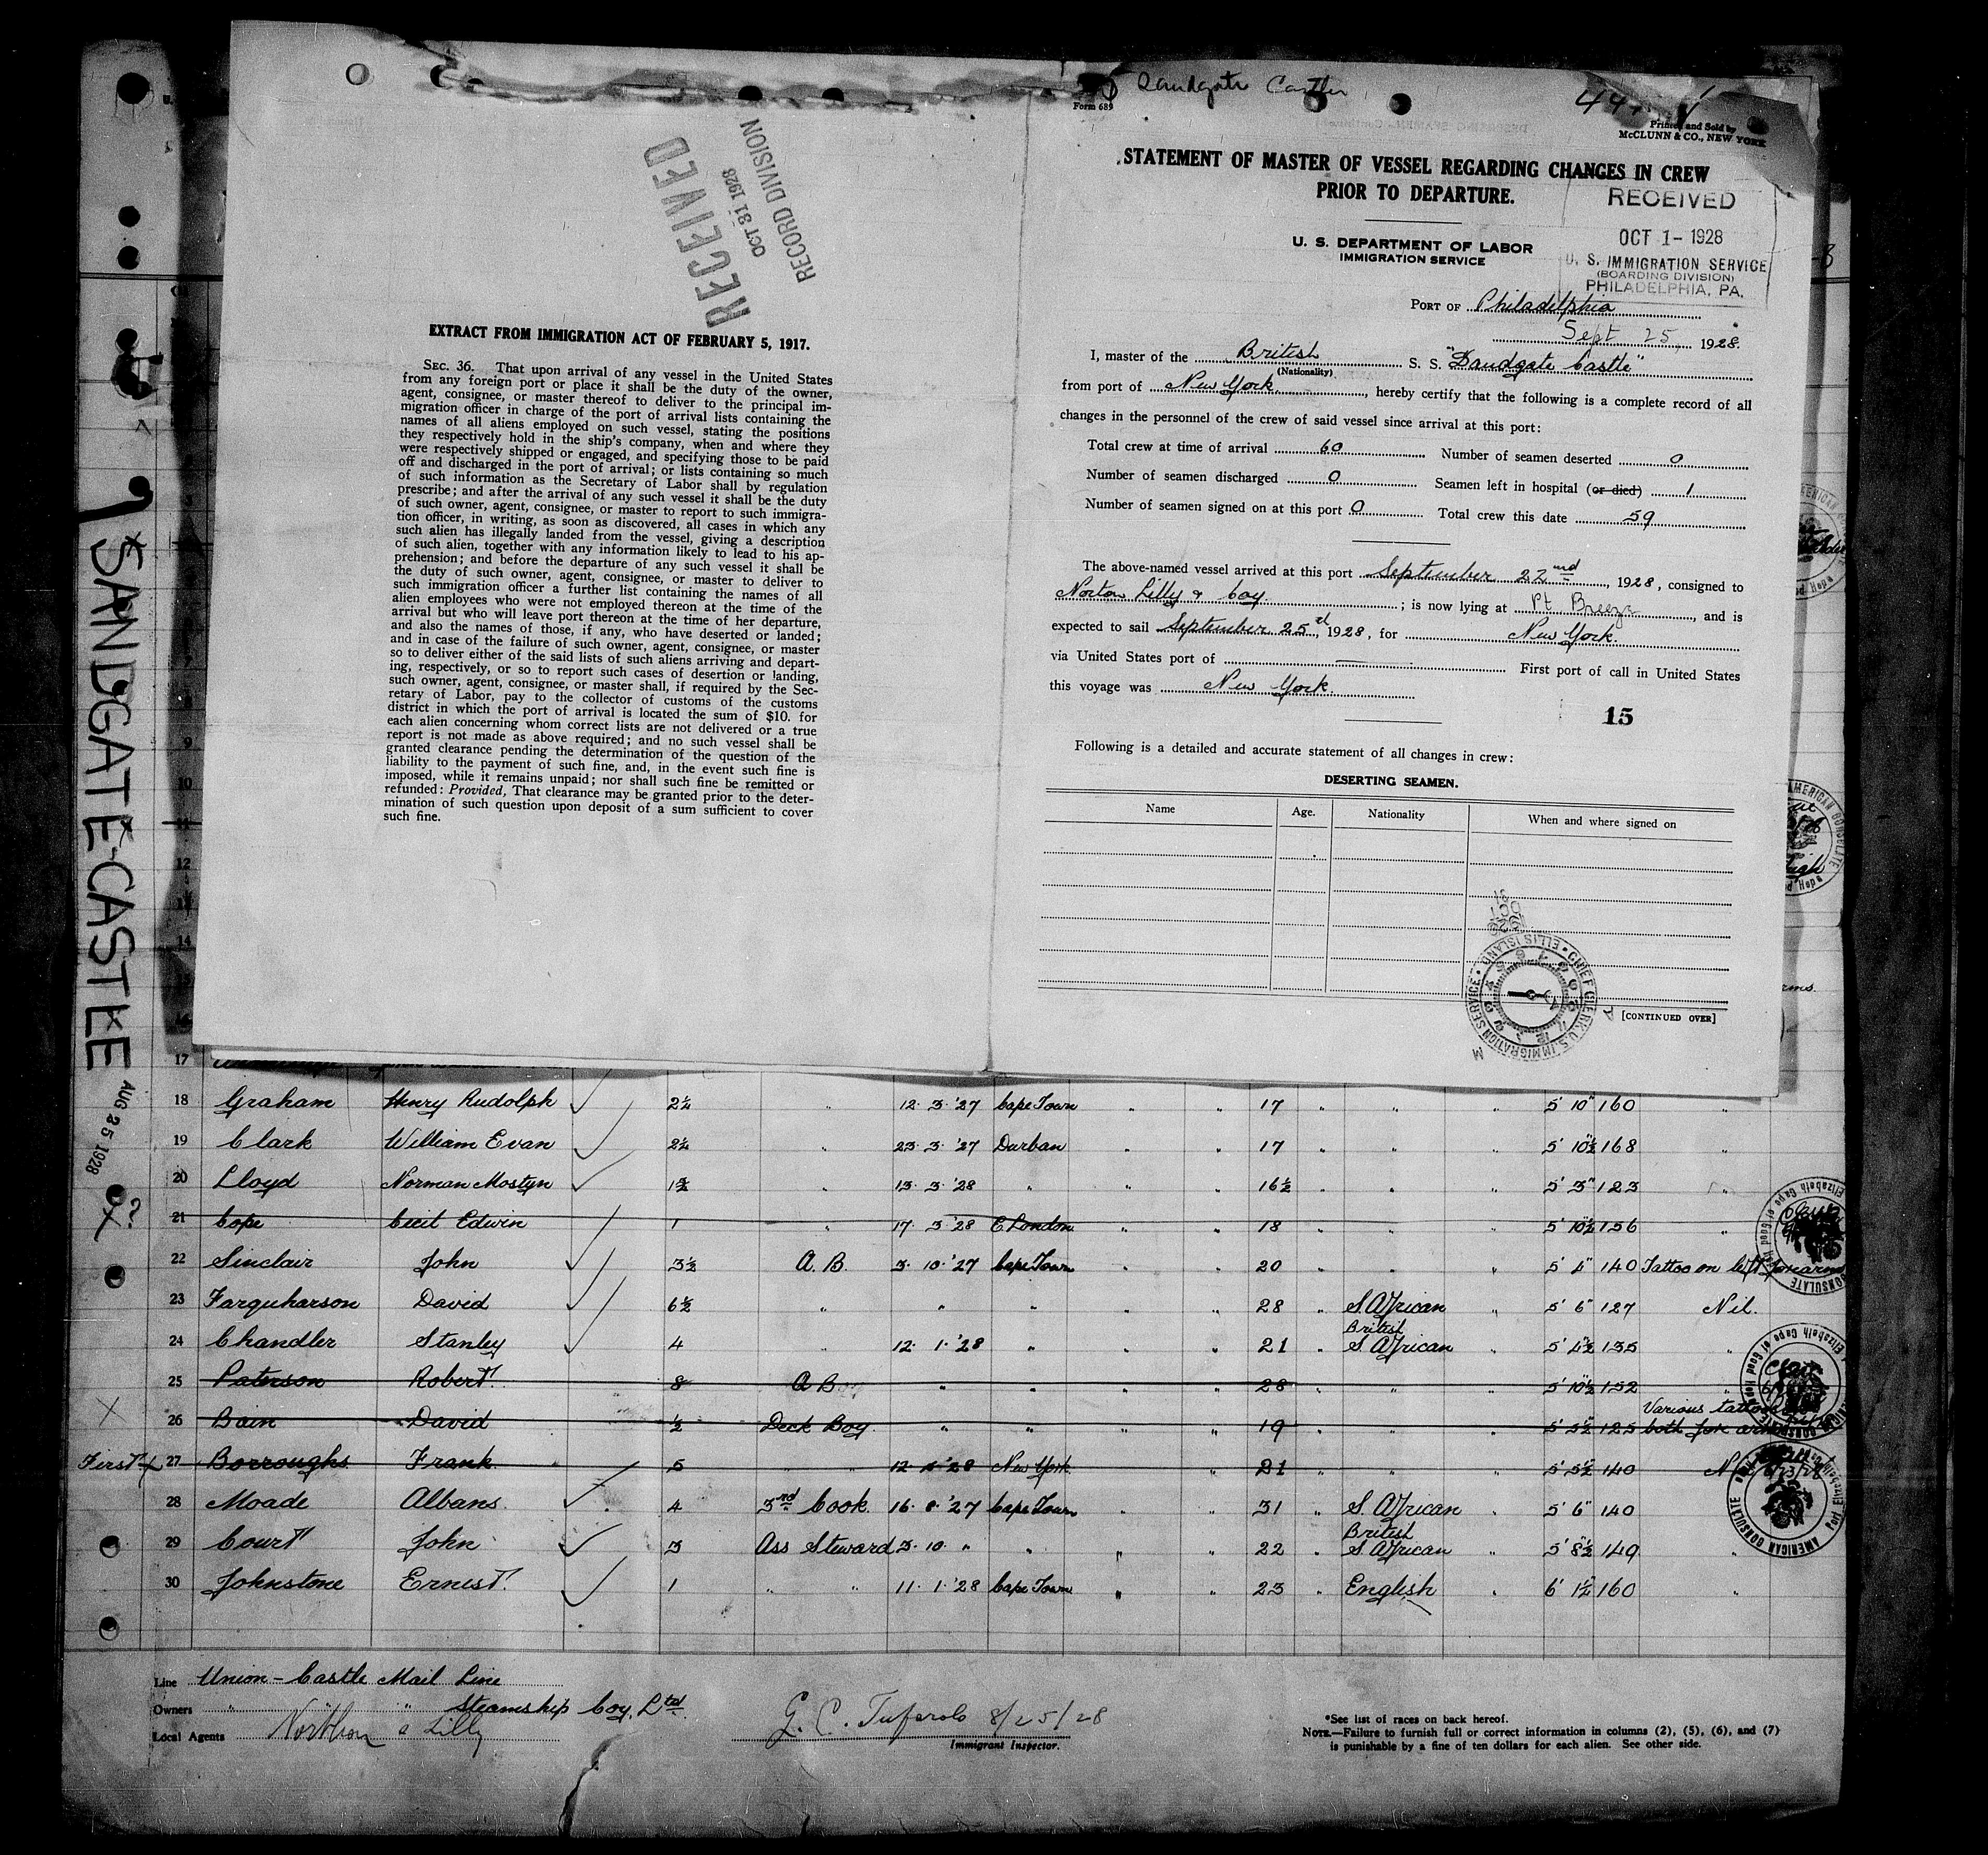 SANDGATE-CASTLE
AUG 25 1928
RECEIVED
OCT 31 1928
RECORD DIVISION
EXTRACT FROM IMMIGRATION ACT OF FEBRUARY 5, 1917.
SEC. 36. That upon arrival of any vessel in the United States
from any foreign port or place it shall be the duty of the owner,
agent, consignee, or master thereof to deliver to the principal im-
migration officer in charge of the port of arrival lists containing the
names of all aliens employed on such vessel, stating the positions
they respectively hold in the ship's company, when and where they
were respectively shipped or engaged, and specifying those to be paid
off and discharged in the port of arrival; or lists containing so much
of such information as the Secretary of Labor shall by regulation
prescribe; and after the arrival of any such vessel it shall be the duty
of such owner, agent, consignee, or master to report to such immigra-
tion officer, in writing, as soon as discovered, all cases in which any
such alien has illegally landed from the vessel, giving a description
of such alien, together with any information likely to lead to his ap-
prehension; and before the departure of any such vessel it shall be
the duty of such owner, agent, consignee, or master to deliver to
such immigration officer a further list containing the names of all
alien employees who were not employed thereon at the time of the
arrival but who will leave port thereon at the time of her departure,
and also the names of those, if any, who have deserted or landed;
and in case of the failure of such owner, agent, consignee, or master
so to deliver either of the said lists of such aliens arriving and depart-
ing, respectively, or so to report such cases of desertion or landing,
such owner, agent, consignee, or master shall, if required by the Sec-
retary of Labor, pay to the collector of customs of the customs
district in which the port of arrival is located the sum of $10. for
each alien concerning whom correct lists are not delivered or a true
report is not made as above required; and no such vessel shall be
granted clearance pending the determination of the question of the
liability to the payment of such fine, and, in the event such fine is
imposed, while it remains unpaid; nor shall such fine be remitted or
refunded: Provided, That clearance may be granted prior to the deter-
mination of such question upon deposit of a sum sufficient to cover
such fine.
Sandgate Castle
Form 689
Printed and Sold by
McCLUNN & CO., NEW YORK
STATEMENT OF MASTER OF VESSEL REGARDING CHANGES IN CREW
PRIOR TO DEPARTURE.
RECEIVED
OCT 1- 1928
U. S. IMMIGRATION SERVICE
(BOARDING DIVISION)
PHILADELPHIA, PA.
U. S. DEPARTMENT OF LABOR
IMMIGRATION SERVICE
PORT OF Philadelphia
Sept 25, 1928.
I, master of the British S. S. "Sandgate Castle"
(Nationality)
from port of New York, hereby certify that the following is a complete record of all
changes in the personnel of the crew of said vessel since arrival at this port:
Total crew at time of arrival 60 Number of seamen deserted 0
Number of seamen discharged 0 Seamen left in hospital (or died) 1
Number of seamen signed on at this port 0 Total crew this date 59
The above-named vessel arrived at this port September 22nd, 1928, consigned to
Norton Lilly & Coy; is now lying at Pt Breeze, and is
expected to sail September 25d, 1928, for New York.
via United States port of — First port of call in United States
this voyage was New York.
15
Following is a detailed and accurate statement of all changes in crew:
DESERTING SEAMEN.
Name Age. Nationality When and where signed on
CHIEF CLERK U.S. IMMIGRATION SERVICE • ELLIS ISLAND
[CONTINUED OVER]
9
10
11
12
13
14
17
18 Graham Henry Rudolph 2¼ " 12. 3. '27 Cape Town " " 17 " " " 5' 10" 160 "
19 Clark William Evan 2¼ " 23. 3. '27 Durban " " 17 " " " 5' 10½" 168 "
20 Lloyd Norman Mostyn 1½ " 13. 3. '28 " " " 16½ " " " 5' 3" 123 "
21 Cope Cecil Edwin 1 " 17. 3 '28 E. London " " 18 " " " 5' 10½" 156 "
22 Sinclair John 3½ A. B. 3. 10. '27 Cape Town " " 20 " " " 5' 4" 140 Tattoo on left forearm
23 Farquharson David 6½ " " " " " 28 " S. African " 5' 6" 127 Nil.
British
24 Chandler Stanley 4 " 12. 1. '28 " " " 21 " S. African " 5' 4½" 135 "
25 Paterson Robert 8 A B " " " " 28 " " " 5' 10½" 152 "
Various tattoos
26 Bain David ½ Deck Boy " " " " 19 " " " 5' 5½" 125 both fore arms
First 27 Borroughs Frank 5 " " '28 New York " 21 " " " 5' 5½" 140 "
28 Moade Albans 4 3rd Cook. 16. 8. '27 Cape Town " " 31 " S. African " 5' 6" 140
British
29 Court John 3 Ass Steward 3. 10. " " " " 22 " S. African " 5' 8½" 149 "
30 Johnstone Ernest 1 " " 11. 1. '28 Cape Town " " 23 " English " 6' 1½" 160 "
AMERICAN CONSULATE
Line Union-Castle Mail Line
Owners " " Steamship Coy. Ltd
Local Agents Northon & Lilly
8/25/28
Immigrant Inspector.
*See list of races on back hereof.
NOTE.—Failure to furnish full or correct information in columns (2), (5), (6), and (7)
is punishable by a fine of ten dollars for each alien. See other side.